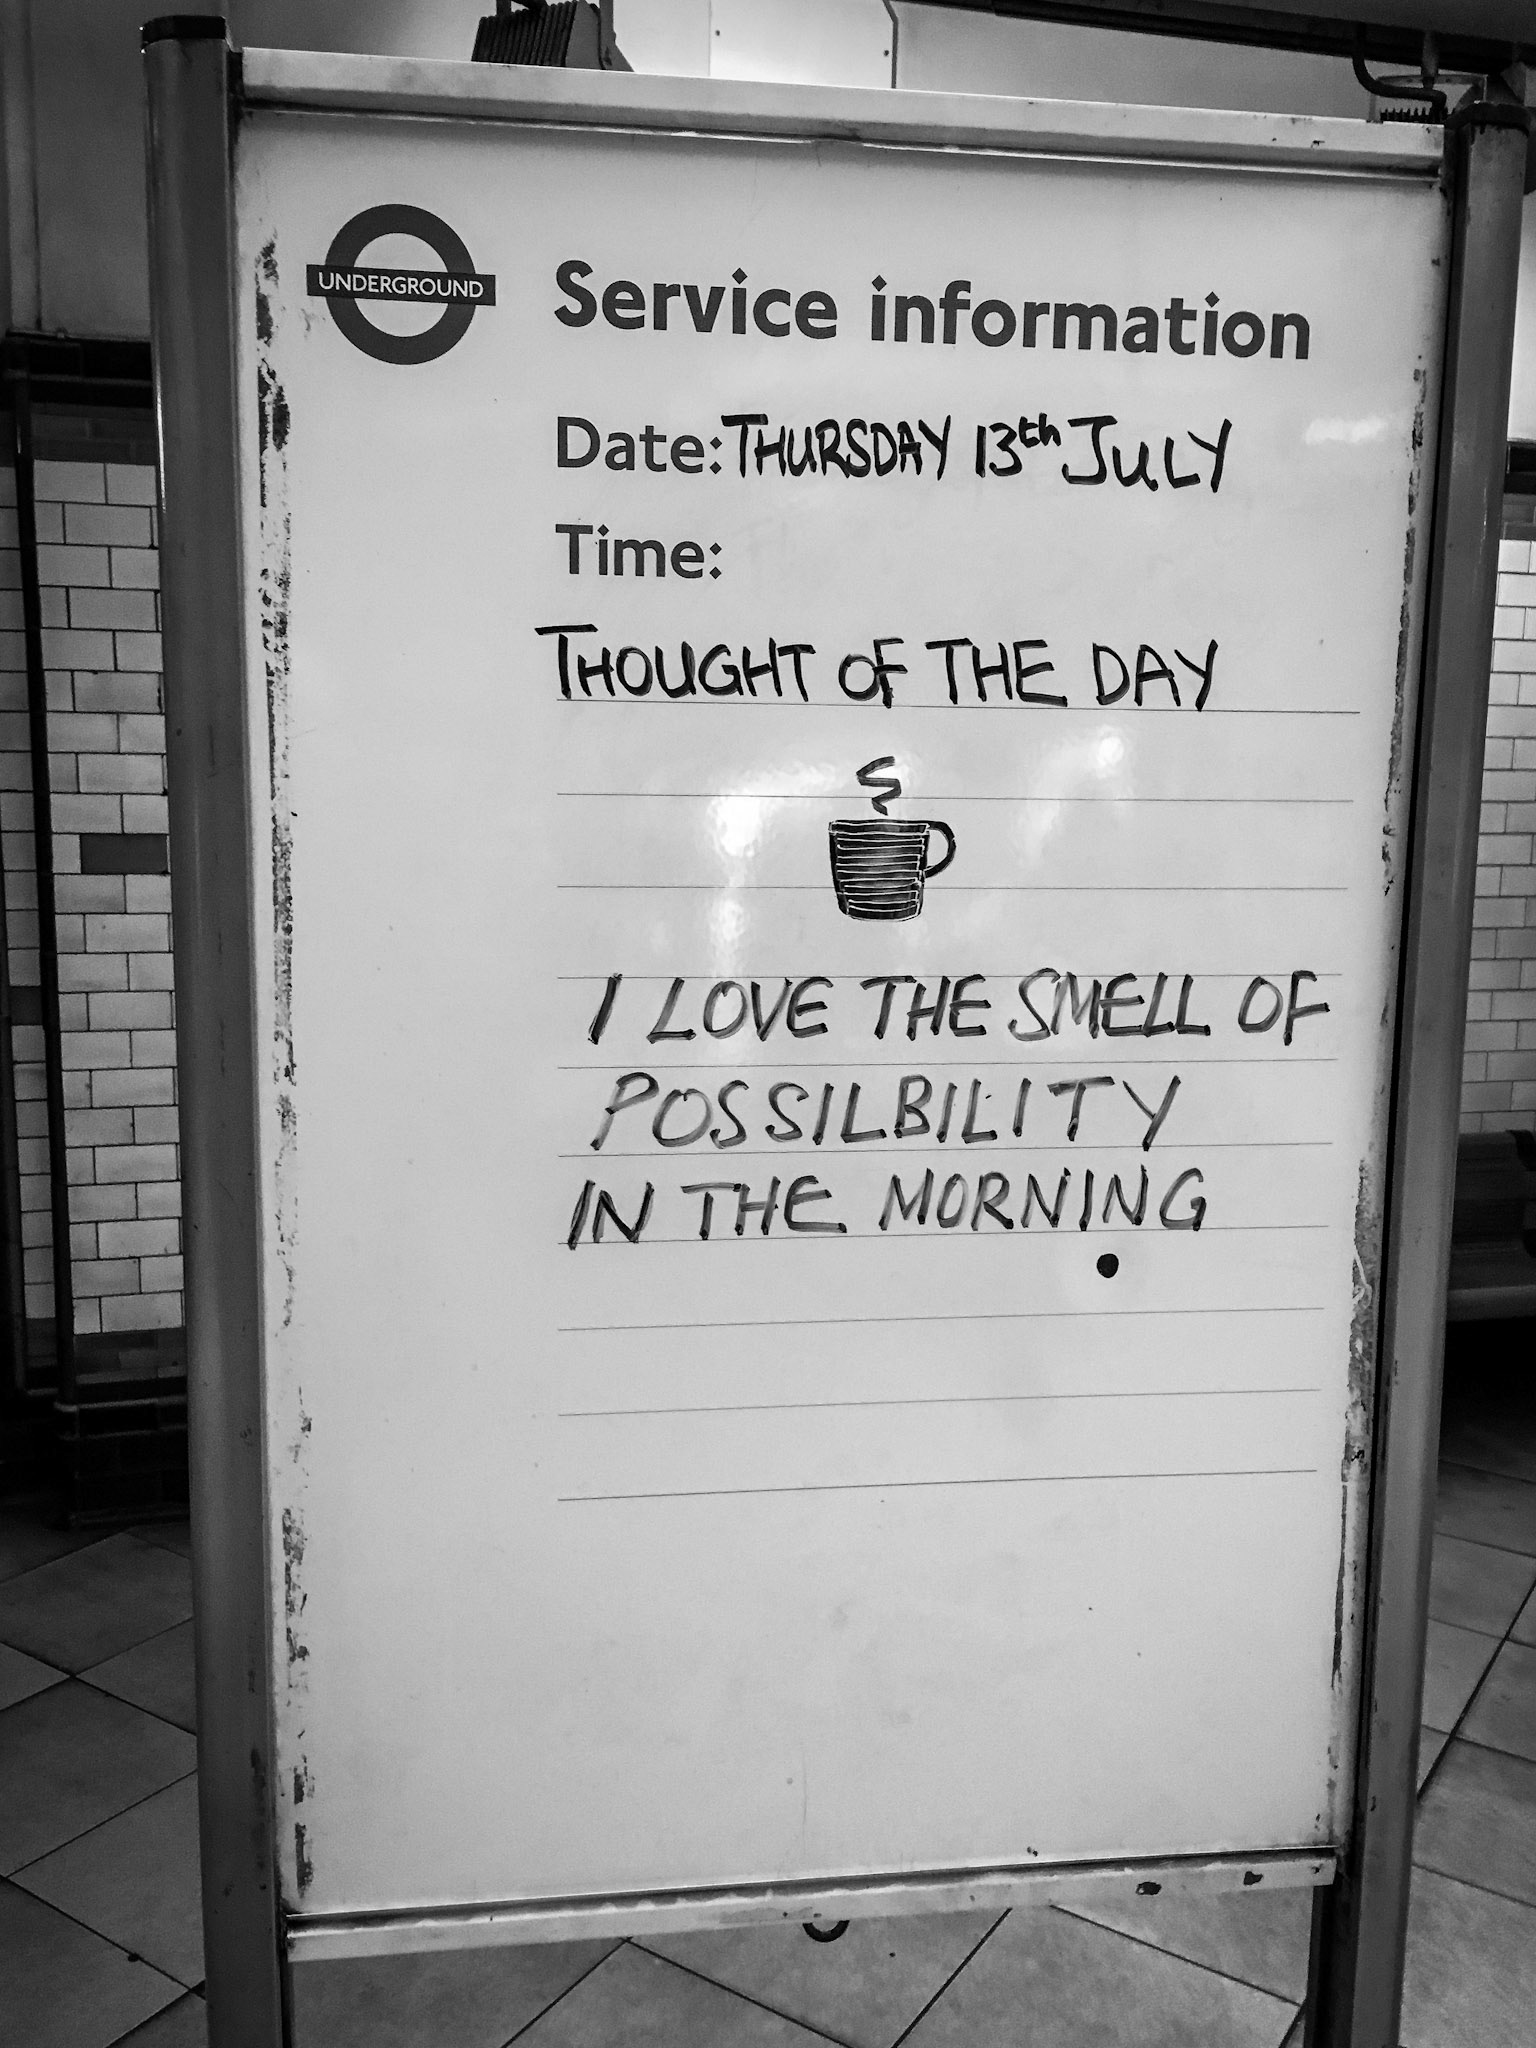 UNDERGROUND
Service information
Date: THURSDAY 13th JULY
Time:
THOUGHT OF THE DAY
I LOVE THE SMELL OF
POSSILBILITY
IN THE MORNING
.